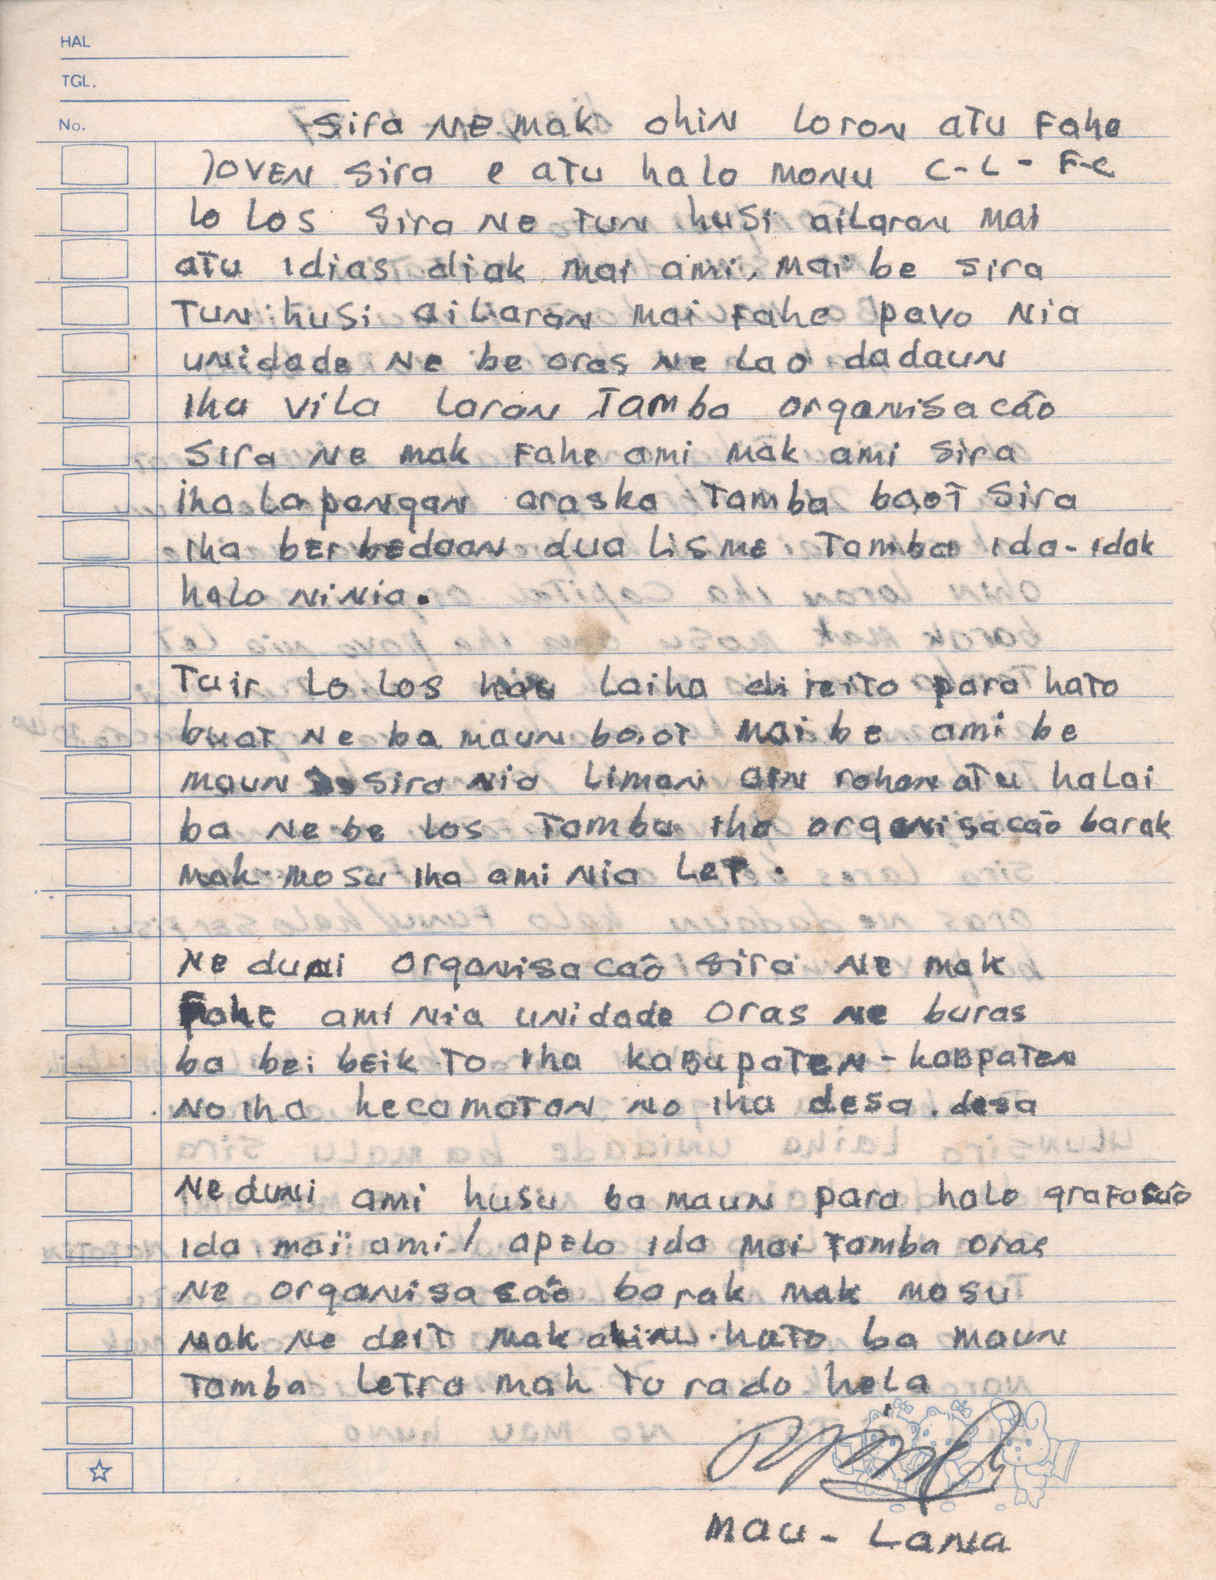 HAL
TGL.
No.
Sira NE mak ohin loron atu Fahe
JOVEN Sira e atu halo monu C-L-F-C
lo los Sira NE TUN husi ailaran mai
atu idias diak mai ami, mai be sira
TUN husi ailaran mai Fahe povo Nia
unidade NE be oras NE Lao dadaun
iha vila laran Tamba organisacão
Sira NE mak Fahe ami mak ami Sira
iha lapangan araska Tamba boot Sira
iha berbedaan dua lisme Tamba ida-idak
halo NiNia.
Tuir Lo Los hau laiha direito para hato
buat NE ba maun boot mai be ami be
maun Sira Nia liman ain rohan atu halai
ba NE be los Tamba iha organisacão barak
mak mosu iha ami Nia LeT.
NE duni organisacaõ Sira NE mak
Fahe ami Nia unidade oras NE buras
ba bei beik to iha kabupaten-kabpaten
No iha kecamatan no iha desa. desa
NE duni ami husu ba maun para halo grafasão
ida mai ami / apelo ida mai Tamba oras
NE organisasão barak mak mosu
mak NE deit mak ohin hato ba maun
Tamba letra mak tu rado hela
MAU-LANA